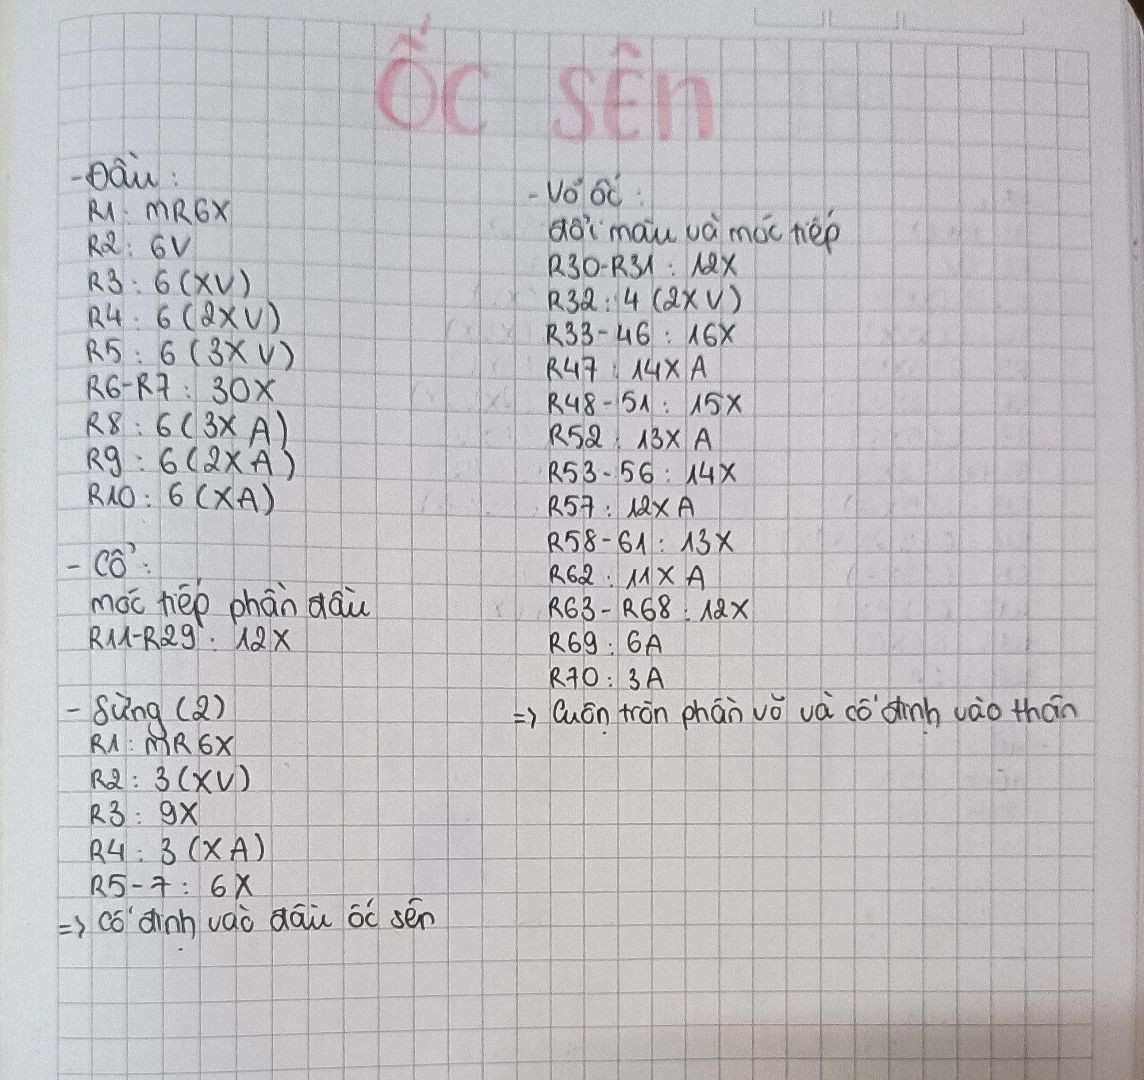 ỐC SÊN
- Đầu:
R1: MR6X
R2: 6V
R3: 6(XV)
R4: 6(2XV)
R5: 6(3XV)
R6-R7: 30X
R8: 6(3XA)
R9: 6(2XA)
R10: 6(XA)
- Cổ:
móc tiếp phần đầu
R11-R29: 12X
- Sừng (2)
R1: MR6X
R2: 3(XV)
R3: 9X
R4: 3(XA)
R5-7: 6X
=> Cố định vào đầu ốc sên
- Vỏ ốc:
đổi màu và móc tiếp
R30-R31: 12X
R32: 4(2XV)
R33-46: 16X
R47: 14XA
R48-51: 15X
R52: 13XA
R53-56: 14X
R57: 12XA
R58-61: 13X
R62: 11XA
R63-R68: 12X
R69: 6A
R70: 3A
=> Cuộn tròn phần vỏ và cố định vào thân